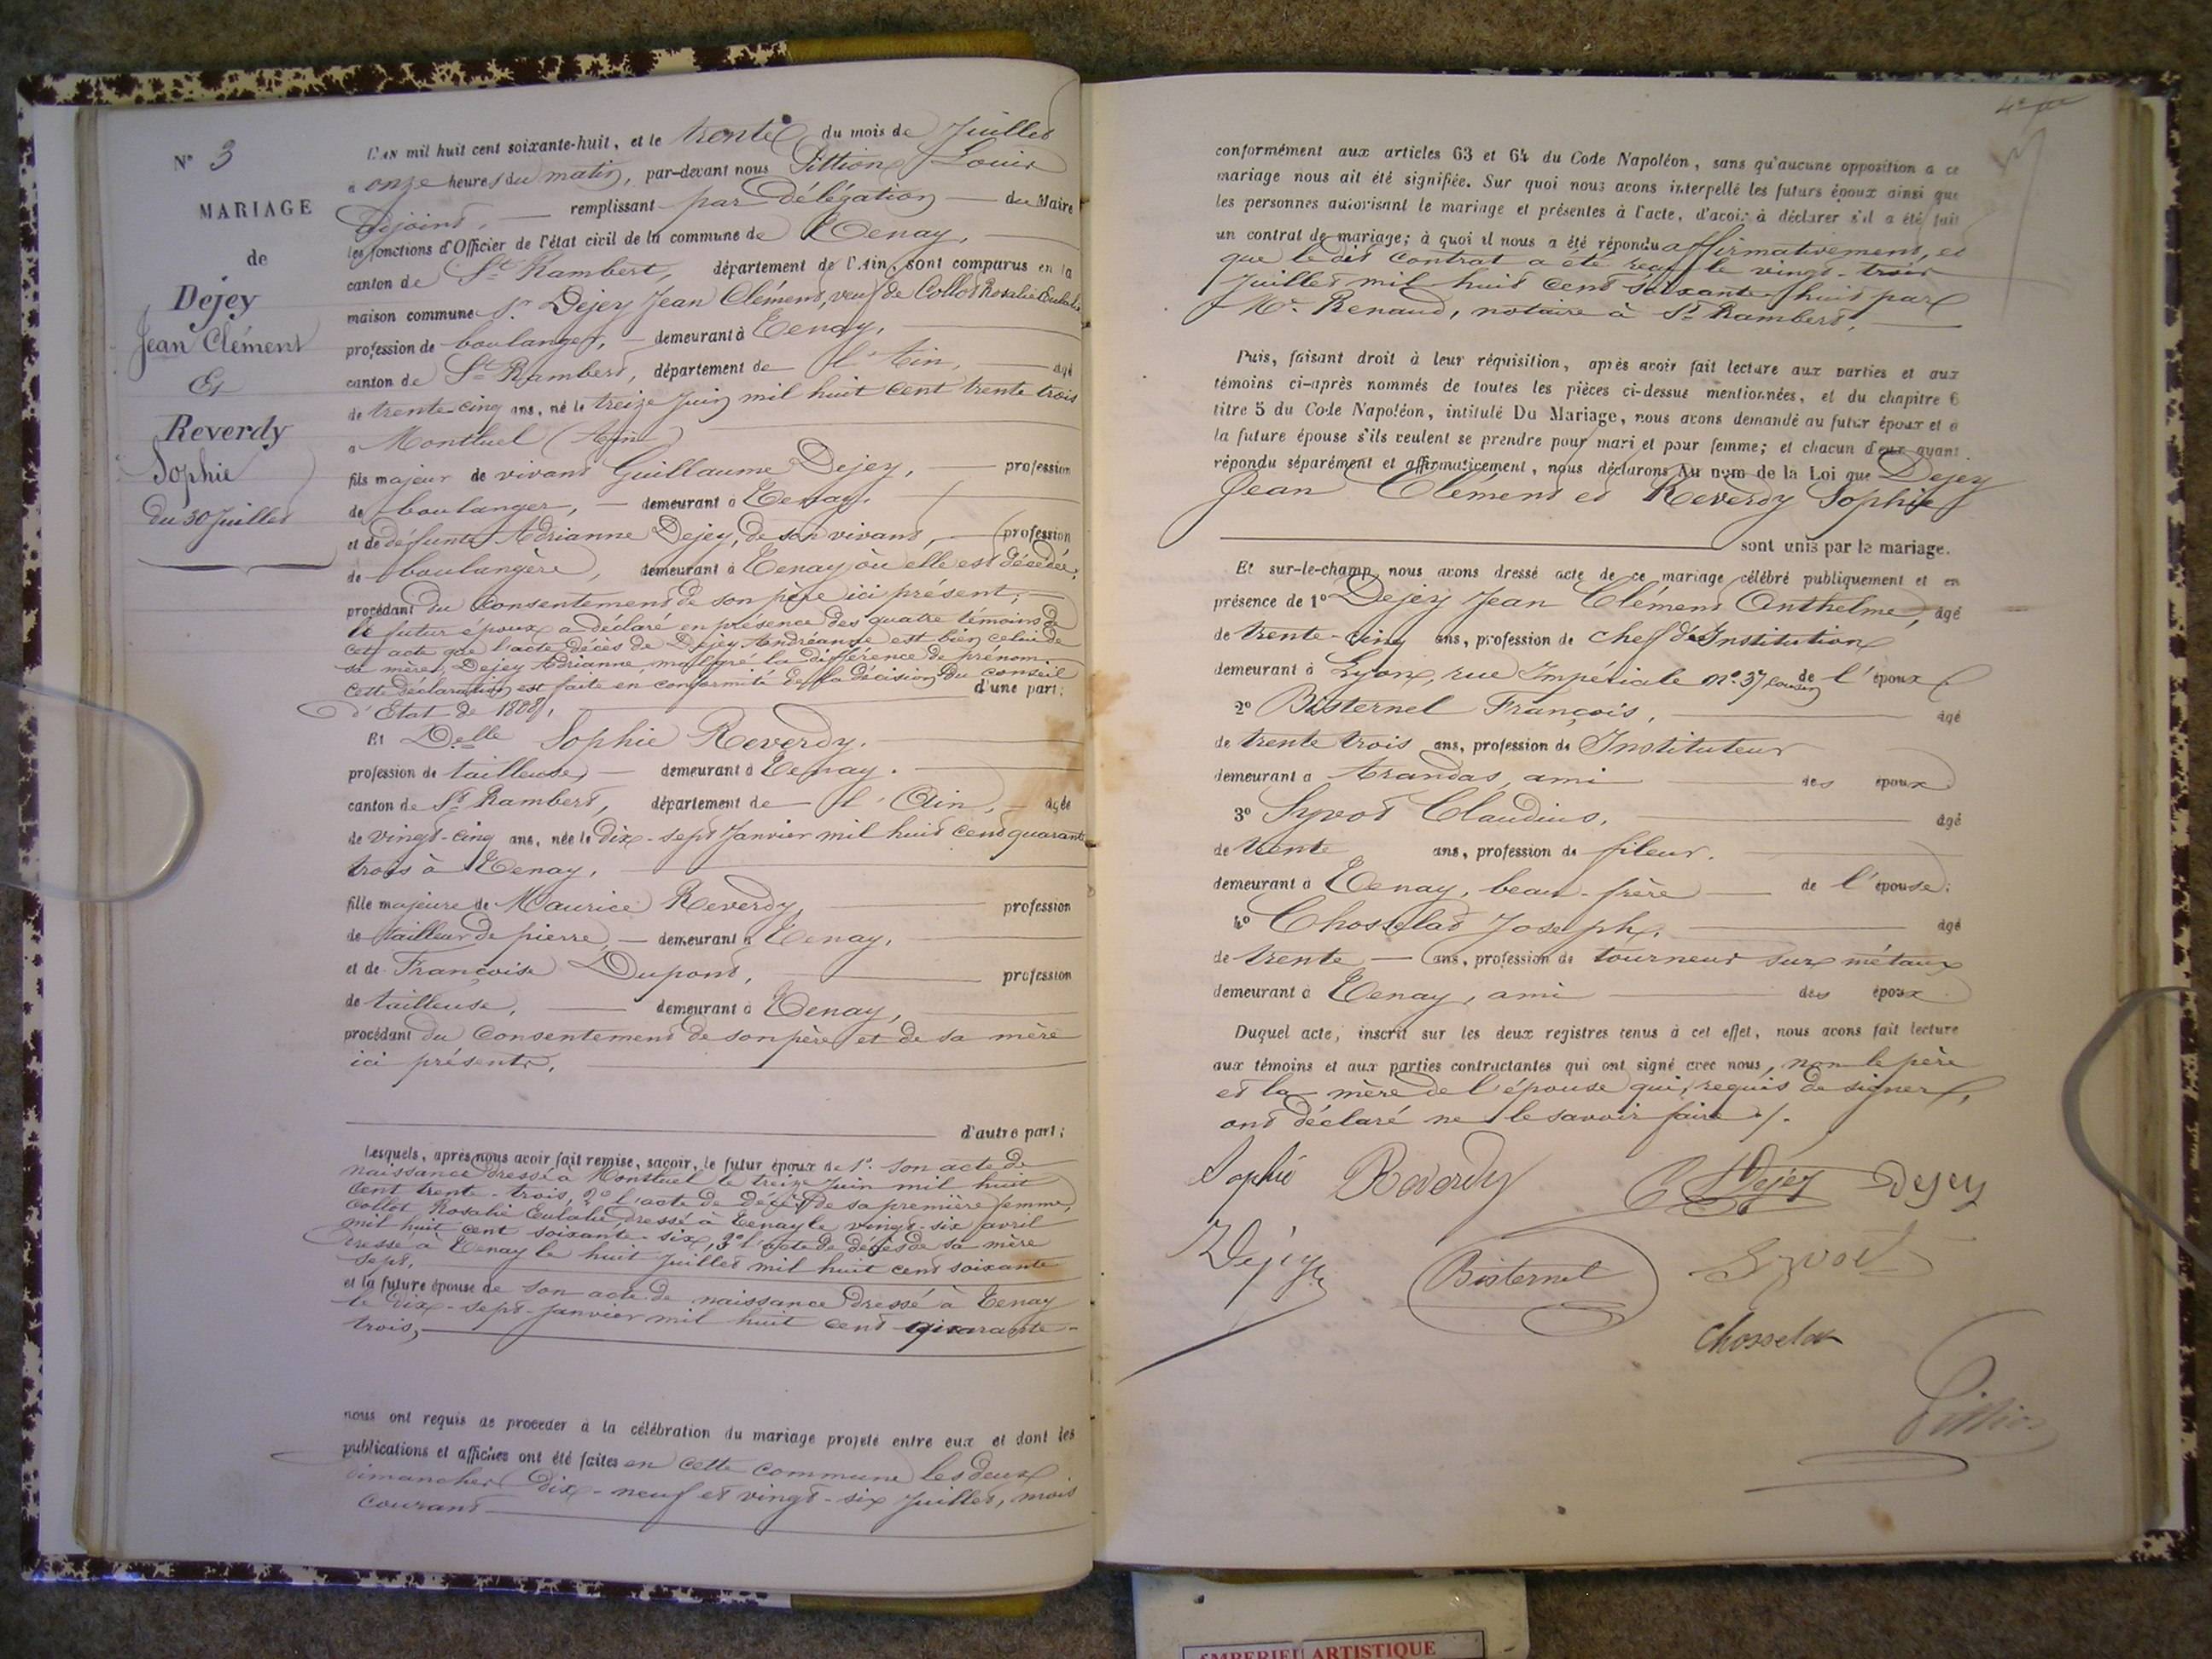 N° 3
MARIAGE
de
Dejey
Jean Clément
Et
Reverdy
Sophie
du 30 Juillet
L'AN mil huit cent soixante-huit, et le trente du mois de Juillet
à onze heures du matin, par-devant nous Pittion Louis
Adjoint, remplissant par délégation du Maire
les fonctions d'Officier de l'état civil de la commune de Tenay,
canton de St Rambert, département de l'Ain, sont comparus en la
maison commune Sr Dejey Jean Clément, veuf de Collot Rosalie Eulalie
profession de boulanger, demeurant à Tenay,
canton de St Rambert, département de l'Ain, agé
de trente-cinq ans, né le treize Juin mil huit cent trente trois
à Montluel (Ain)
fils majeur de vivant Guillaume Dejey, profession
de boulanger, demeurant à Tenay,
et de défunte Adrianne Dejey, de son vivant, profession
de boulangère, demeurant à Tenay où elle est décédée,
procédant du consentement de son père ici présent;
le futur époux a déclaré en présence des quatre témoins de
cet acte que l'acte décès de Dejey Andréanne est bien celui de
sa mère, Dejey Adrianne, malgré la différence de prénom
cette déclaration est faite en conformité de la décision du conseil
d'Etat de 1808, d'une part;
Et Delle Sophie Reverdy.
profession de tailleuse, demeurant à Tenay.
canton de St Rambert, département de l'Ain, agée
de vingt-cinq ans, née le dix-sept Janvier mil huit cent quarante
trois à Tenay,
fille majeure de Maurice Reverdy, profession
de tailleur de pierre, demeurant à Tenay,
et de Françoise Dupont, profession
de tailleuse, demeurant à Tenay,
procédant du consentement de son père et de sa mère
ici présents,
d'autre part;
Lesquels, après nous avoir fait remise, savoir, le futur époux de 1°. son acte de
naissance dressé à Montluel le treize Juin mil huit
cent trente-trois, 2° l'acte de décès de sa première femme,
Collot Rosalie Eulalie, dressé à Tenay le vingt-six avril
mil huit cent soixante-six, 3° l'acte de décès de sa mère
dressé à Tenay le huit Juillet mil huit cent soixante
sept,
et la future épouse de son acte de naissance dressé à Tenay
le dix-sept Janvier mil huit cent quarante-
trois,
nous ont requis de proceder à la célébration du mariage projeté entre eux et dont les
publications et affiches ont été faites en cette commune les deux
dimanches dix-neuf et vingt-six Juillet, mois
courant
conformément aux articles 63 et 64 du Code Napoléon, sans qu'aucune opposition a ce
mariage nous ait été signifiée. Sur quoi nous avons interpellé les futurs époux ainsi que
les personnes autorisant le mariage et présentes à l'acte, d'avoir à déclarer s'il a été fait
un contrat de mariage; à quoi il nous a été répondu affirmativement, et
que le dit contrat a été reçu le vingt-trois
Juillet mil huit cent soixante-huit par
Me. Renaud, notaire à St Rambert,
Puis, faisant droit à leur réquisition, après avoir fait lecture aux parties et aux
témoins ci-après nommés de toutes les pièces ci-dessus mentionnées, et du chapitre 6
titre 5 du Code Napoléon, intitulé Du Mariage, nous avons demandé au futur époux et à
la future épouse s'ils veulent se prendre pour mari et pour femme; et chacun d'eux ayant
répondu séparément et affirmativement, nous déclarons Au nom de la Loi que Dejey
Jean Clément et Reverdy Sophie
sont unis par le mariage.
Et sur-le-champ nous avons dressé acte de ce mariage célébré publiquement et en
présence de 1° Dejey Jean Clément Anthelme, agé
de trente-cinq ans, profession de chef d'Institution
demeurant à Lyon, rue Impériale n°. 37 cousin de l'époux
2° Bisternel François, agé
de trente trois ans, profession de Instituteur
demeurant à Arandas, ami des époux
3° Syvot Claudius, agé
de trente ans, profession de fileur.
demeurant à Tenay, beau-frère de l'épouse;
4° Chosselat Joseph, agé
de trente ans, profession de tourneur sur métaux
demeurant à Tenay, ami des époux
Duquel acte, inscrit sur les deux registres tenus à cet effet, nous avons fait lecture
aux témoins et aux parties contractantes qui ont signé avec nous, non le père
et la mère de l'épouse qui, requis de signer,
ont déclaré ne le savoir faire ./.
Sophie Reverdy Dejey Dejey
Dejey Bisternel Syvot
Chosselat
Pittion
AMBERIEU ARTISTIQUE